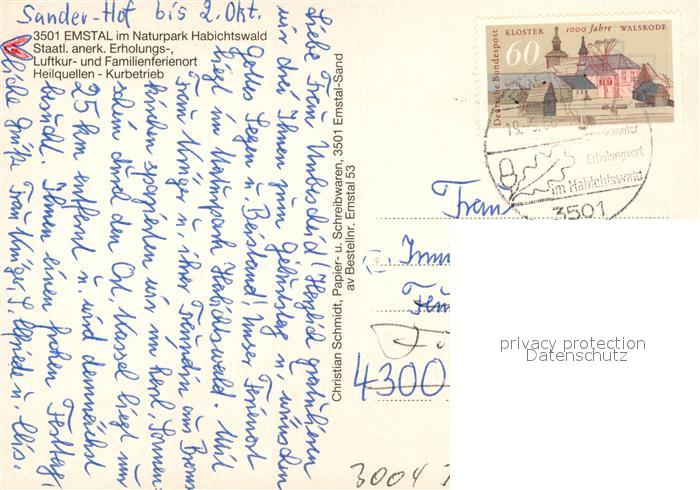 Sander-Hof bis 2. Okt.
3501 EMSTAL im Naturpark Habichtswald
Staatl. anerk. Erholungs-,
Luftkur- und Familienferienort
Heilquellen - Kurbetrieb
Liebe Frau Unbescheid! Herzlich gratulieren
wir Ihnen zum Geburtstag u. wünschen
Gottes Segen u. Beistand! Unser Ferienort
liegt im Naturpark Habichtswald. Mit
Frau Krüger u. ihrer Freundin aus Brems
spazierten wir im herrl. Sonnen-
schein durch den Ort. Kassel liegt nur
25 km entfernt u. wird demnächst
besucht. Ihnen einen frohen Festtag,
liche Grüße Frau Krüger, S. u. Elis.
Christian Schmidt, Papier- u. Schreibwaren, 3501 Emstal-Sand
av Bestellnr. Emstal 53
Deutsche Bundespost
KLOSTER 1000 Jahre WALSRODE
60
Erholungsort
im Habichtswald
3501
Frau
4300
privacy protection
Datenschutz
3004